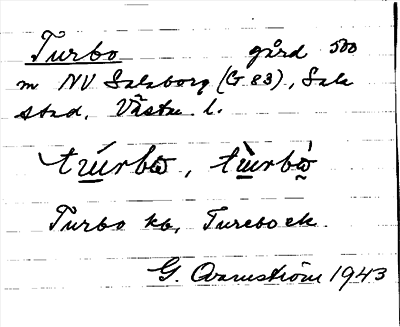 Turbo gård 500
m NV Salaborg (G 83), Sala
stad, Västm l.
Turbo kb, Turebo ek.
G. Qvarnström 1943